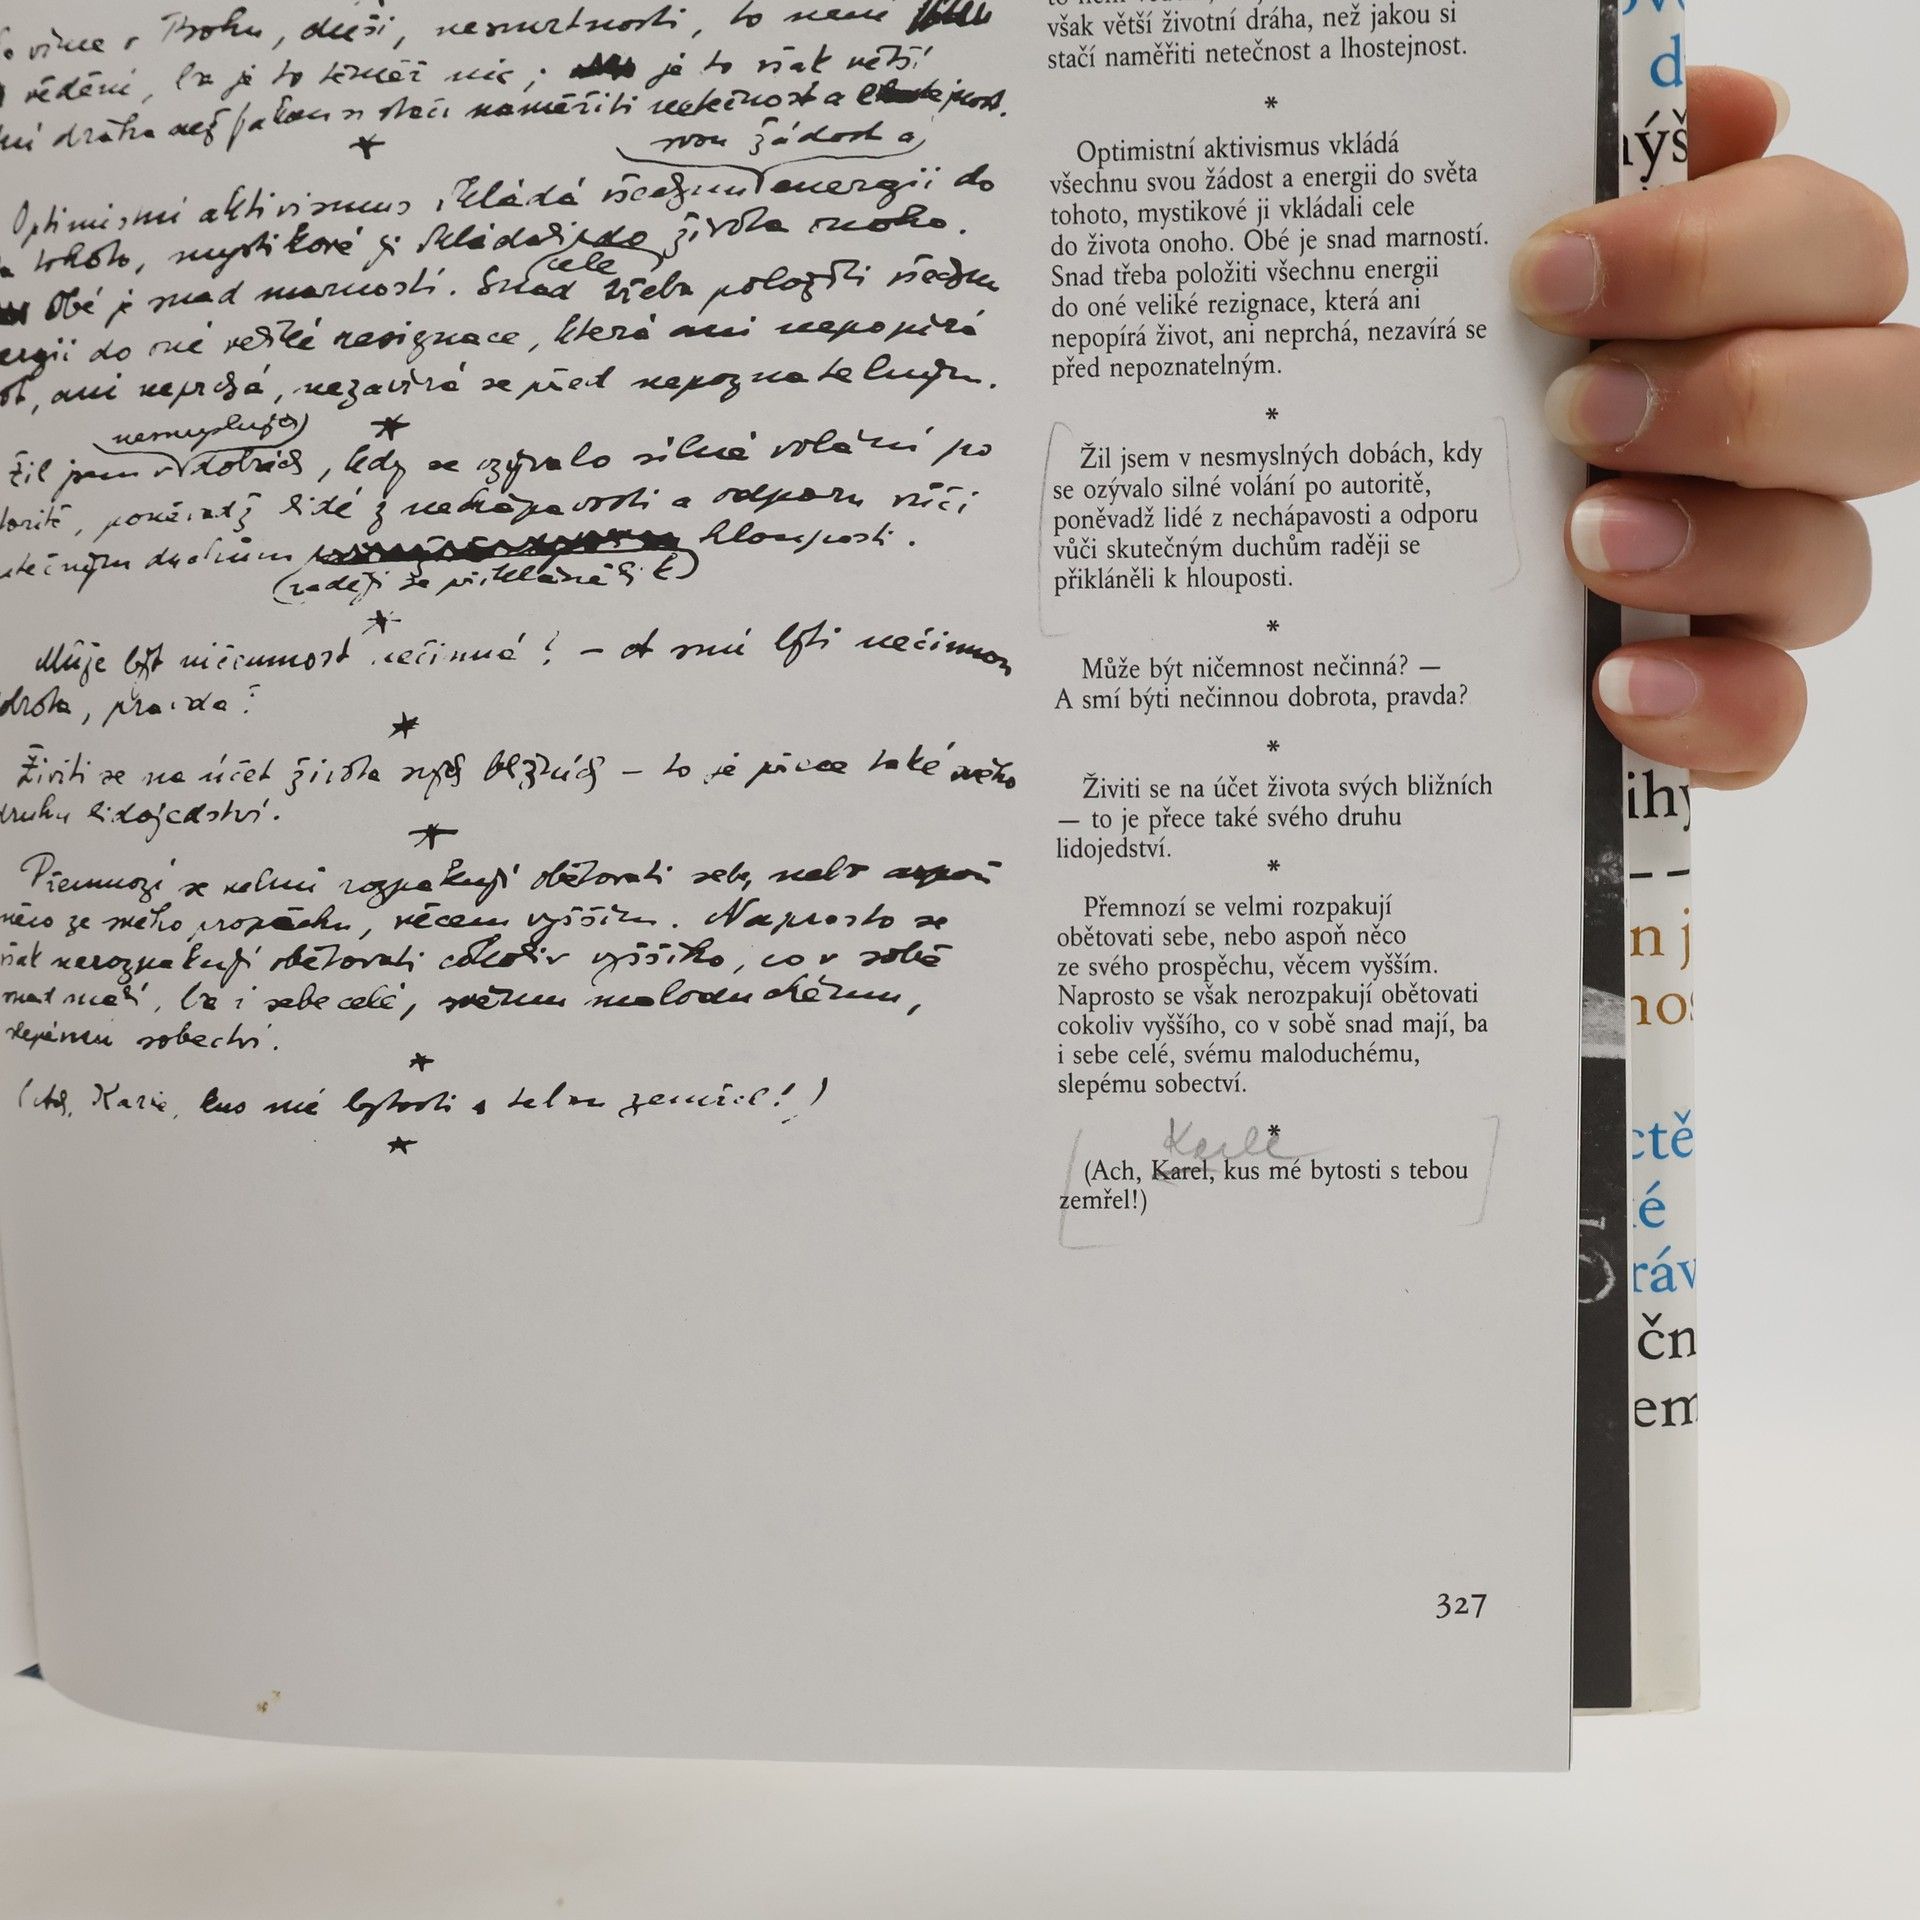 víme o Bohu, duši, nesmrtnosti, to není
vědění, ba je to téměř nic; je to však větší
dráha než jakou si stačí naměřiti netečnost a
*
svou žádost a
Optimistní aktivismus vkládá všechnu energii do
tohoto, mystikové ji vkládali do života onoho.
cele
Obé je snad marností. Snad třeba položiti všechnu
do oné veliké resignace, která ani nepopírá
ani neprchá, nezavírá se před nepoznatelným.
*
nesmyslných
Žil jsem v dobách, kdy se ozývalo silné volání po
poněvadž lidé z nechápavosti a odporu vůči
duchům hlouposti.
(raději se přikláněli k)
*
Může být ničemnost nečinná? – A smí býti nečinnou
pravda?
*
Živiti se na účet života svých bližních – to je přece také svého
druhu lidojedství.
*
Přemnozí se velmi rozpakují obětovati sebe, nebo aspoň
něco ze svého prospěchu, věcem vyšším. Naprosto se
však nerozpakují obětovati cokoliv vyššího, co v sobě
snad mají, ba i sebe celé, svému maloduchému,
slepému sobectví.
*
(Ach, Karle, kus mé bytosti s tebou zemřel!)
*
však větší životní dráha, než jakou si
stačí naměřiti netečnost a lhostejnost.
*
Optimistní aktivismus vkládá
všechnu svou žádost a energii do světa
tohoto, mystikové ji vkládali cele
do života onoho. Obé je snad marností.
Snad třeba položiti všechnu energii
do oné veliké rezignace, která ani
nepopírá život, ani neprchá, nezavírá se
před nepoznatelným.
*
Žil jsem v nesmyslných dobách, kdy
se ozývalo silné volání po autoritě,
poněvadž lidé z nechápavosti a odporu
vůči skutečným duchům raději se
přikláněli k hlouposti.
*
Může být ničemnost nečinná? —
A smí býti nečinnou dobrota, pravda?
*
Živiti se na účet života svých bližních
— to je přece také svého druhu
lidojedství.
*
Přemnozí se velmi rozpakují
obětovati sebe, nebo aspoň něco
ze svého prospěchu, věcem vyšším.
Naprosto se však nerozpakují obětovati
cokoliv vyššího, co v sobě snad mají, ba
i sebe celé, svému maloduchému,
slepému sobectví.
*
Karle
(Ach, Karel, kus mé bytosti s tebou
zemřel!)
327